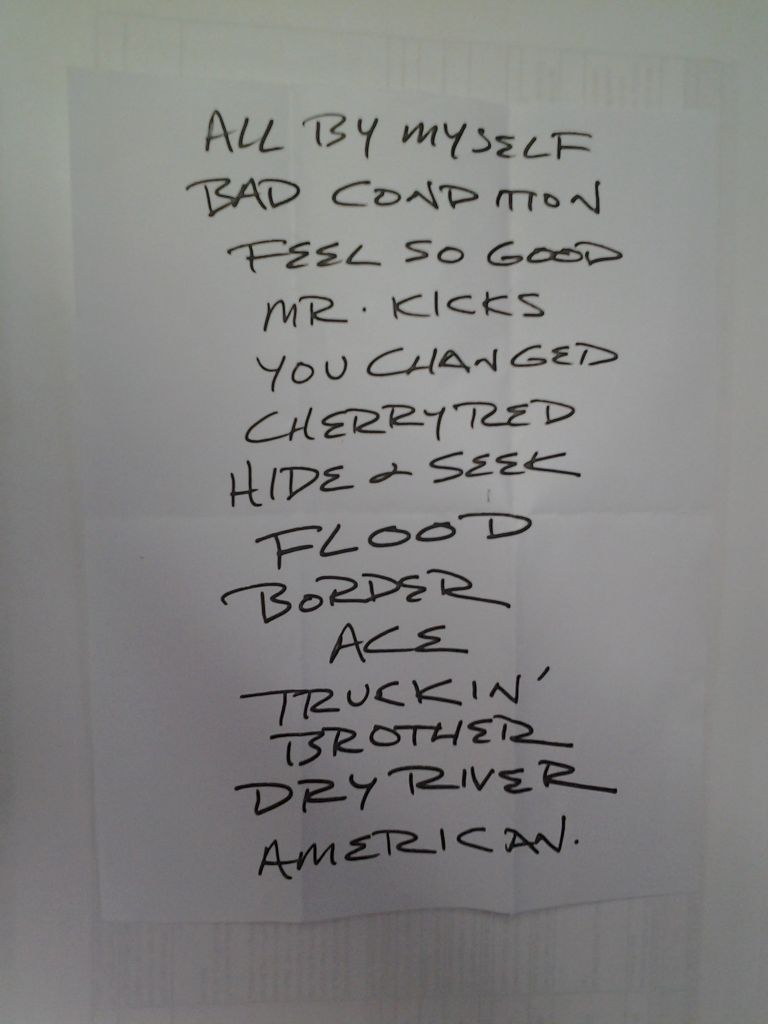 ALL BY MYSELF
BAD CONDITION
FEEL SO GOOD
MR. KICKS
YOU CHANGED
CHERRY RED
HIDE & SEEK
FLOOD
BORDER
ACE
TRUCKIN'
BROTHER
DRY RIVER
AMERICAN.